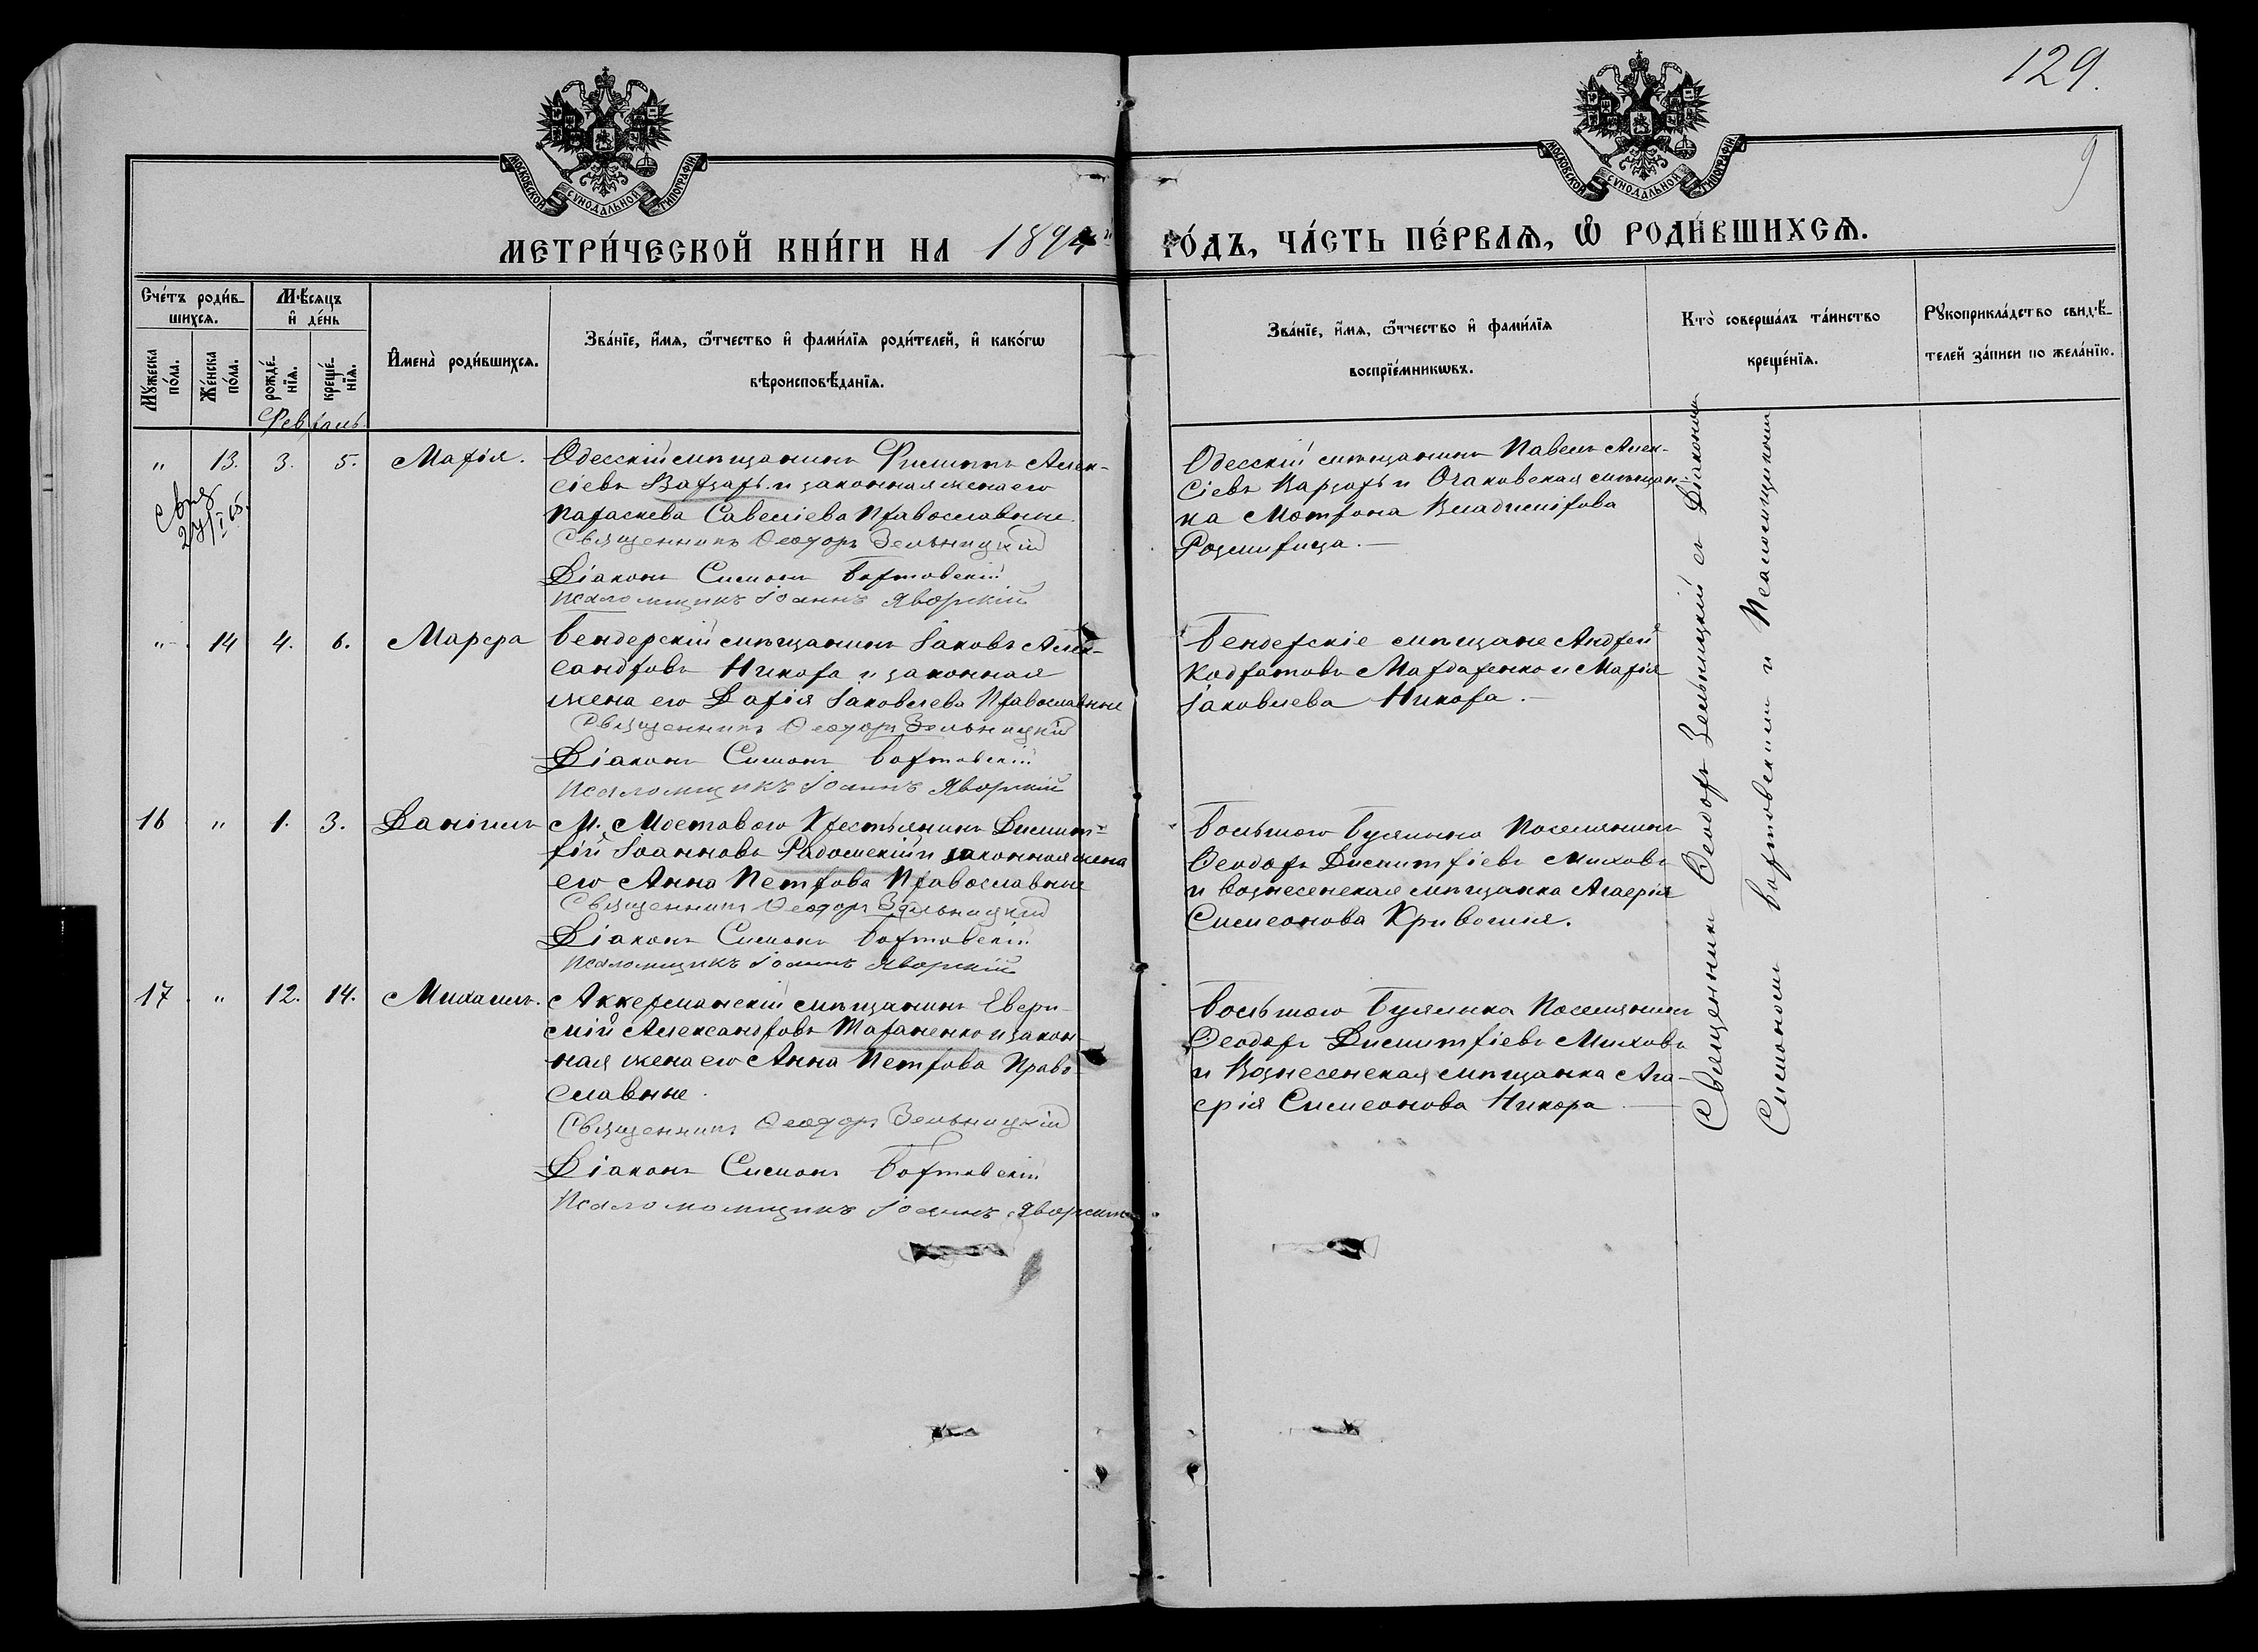 129.
9
МОСКОВСКОЙ СѴНОДАЛЬНОЙ ТИПОГРАФІИ.
МОСКОВСКОЙ СѴНОДАЛЬНОЙ ТИПОГРАФІИ.
МЕТРИ́ЧЕСКОЙ КНИ́ГИ НА 1894 ГО́ДЪ, ЧА́СТЬ ПЕ́РВАЯ, Ѿ РОДИ́ВШИХСЯ.
Сче́тъ роди́в-
шихся.
Мꙋ́жеска
по́ла.
Же́нска
по́ла.
Мѣ́сяцъ
и҆ де́нь
рожде́-
нїя.
креще́-
нїя.
Февраль
И҆мена̀ роди́вшихся.
Зва́нїе, и҆́мя, ѻ҆́тчество и҆ фами́лїя роди́телей, и҆ како́гѡ
вѣроисповѣ́данїя.
Зва́нїе, и҆́мя, ѻ҆́тчество и҆ фами́лїя
воспрїе́мникѡвъ.
Кто̀ соверша́лъ та́инство
креще́нїя.
Рꙋкоприкла́дство свидѣ́-
телей за́писи по жела́нїю.
" 13. 3. 5. Марія.
Одесскій мѣщанинъ Филиппъ Алек-
сіевъ Варзарь и законная жена его
Параскева Савеліева Православные.
Священникъ Ѳеодоръ Зельницкій
Діаконъ Симонъ Бортовскій
Псаломщикъ Іоаннъ Яворскій
Одесскій мѣщанинъ Павелъ Алек-
сіевъ Варзарь и Очаковская мѣщан-
ка Мотрона Владимірова
" 14 4. 6. Марѳа
Бендерскій мѣщанинъ Іаковъ Алек-
сандровъ Никора и законная
жена его Дарія Іаковлева Православные
Священникъ Ѳеодоръ Зельницкій
Діаконъ Симонъ Бортовскій
Псаломщикъ Іоаннъ Яворскій
Бендерскіе мѣщане Андрей
Кодратовъ Мардаренко и Марія
Іаковлева Никора.
16 " 1. 3. Даніилъ
М. Мостового Крестьянинъ Димит-
рій Іоанновъ Радомскій и законная жена
его Анна Петрова Православные
Священникъ Ѳеодоръ Зельницкій
Діаконъ Симонъ Бортовскій
Псаломщикъ Іоаннъ Яворскій
Большого Буялыка Поселянинъ
Ѳеодоръ Димитріевъ Миховъ
и Вознесенская мѣщанка Агаѳія
Симеонова
17 " 12. 14. Михаилъ.
Аккерманскій мѣщанинъ Евѳи-
мій Александровъ Тараненко и закон-
ная жена его Анна Петрова Право-
славные.
Священникъ Ѳеодоръ Зельницкій
Діаконъ Симонъ Бортовскій
Псаломщикъ Іоаннъ Яворскій
Большого Буялыка Поселянинъ
Ѳеодоръ Димитріевъ Миховъ
и Вознесенская мѣщанка Ага-
ѳія Симеонова Никора
Священникъ Ѳеодоръ Зельницкій съ Діакономъ
Симономъ Бортовскимъ и Псаломщикомъ